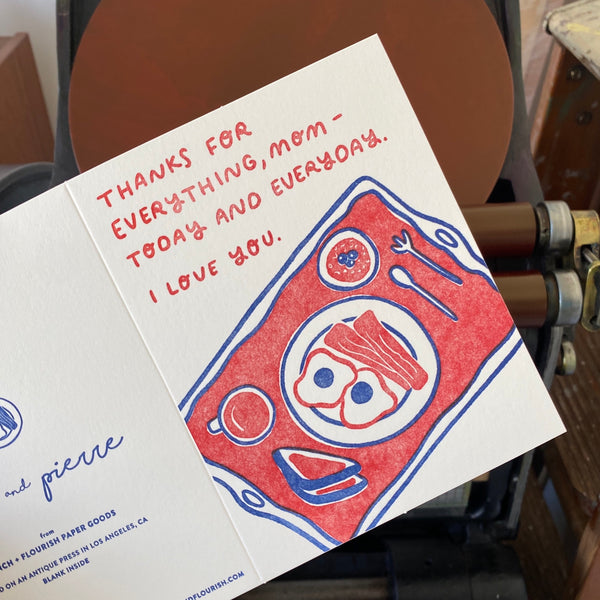 THANKS FOR
EVERYTHING, MOM-
TODAY AND EVERYDAY.
I LOVE YOU.
and pierre
from
FLOURISH PAPER GOODS
ON AN ANTIQUE PRESS IN LOS ANGELES, CA
BLANK INSIDE